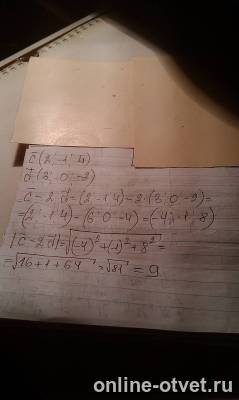 c̄ (2; -1; 4)
d̄ (3; 0; -2)
c̄ - 2 d̄ = (2; -1; 4) - 2·(3; 0; -2) =
= (2; -1; 4) - (6; 0; -4) = (-4; -1; 8)
|c̄ - 2d̄| = √(-4)² + (-1)² + 8² =
= √16 + 1 + 64 = √81 = 9
online-otvet.ru